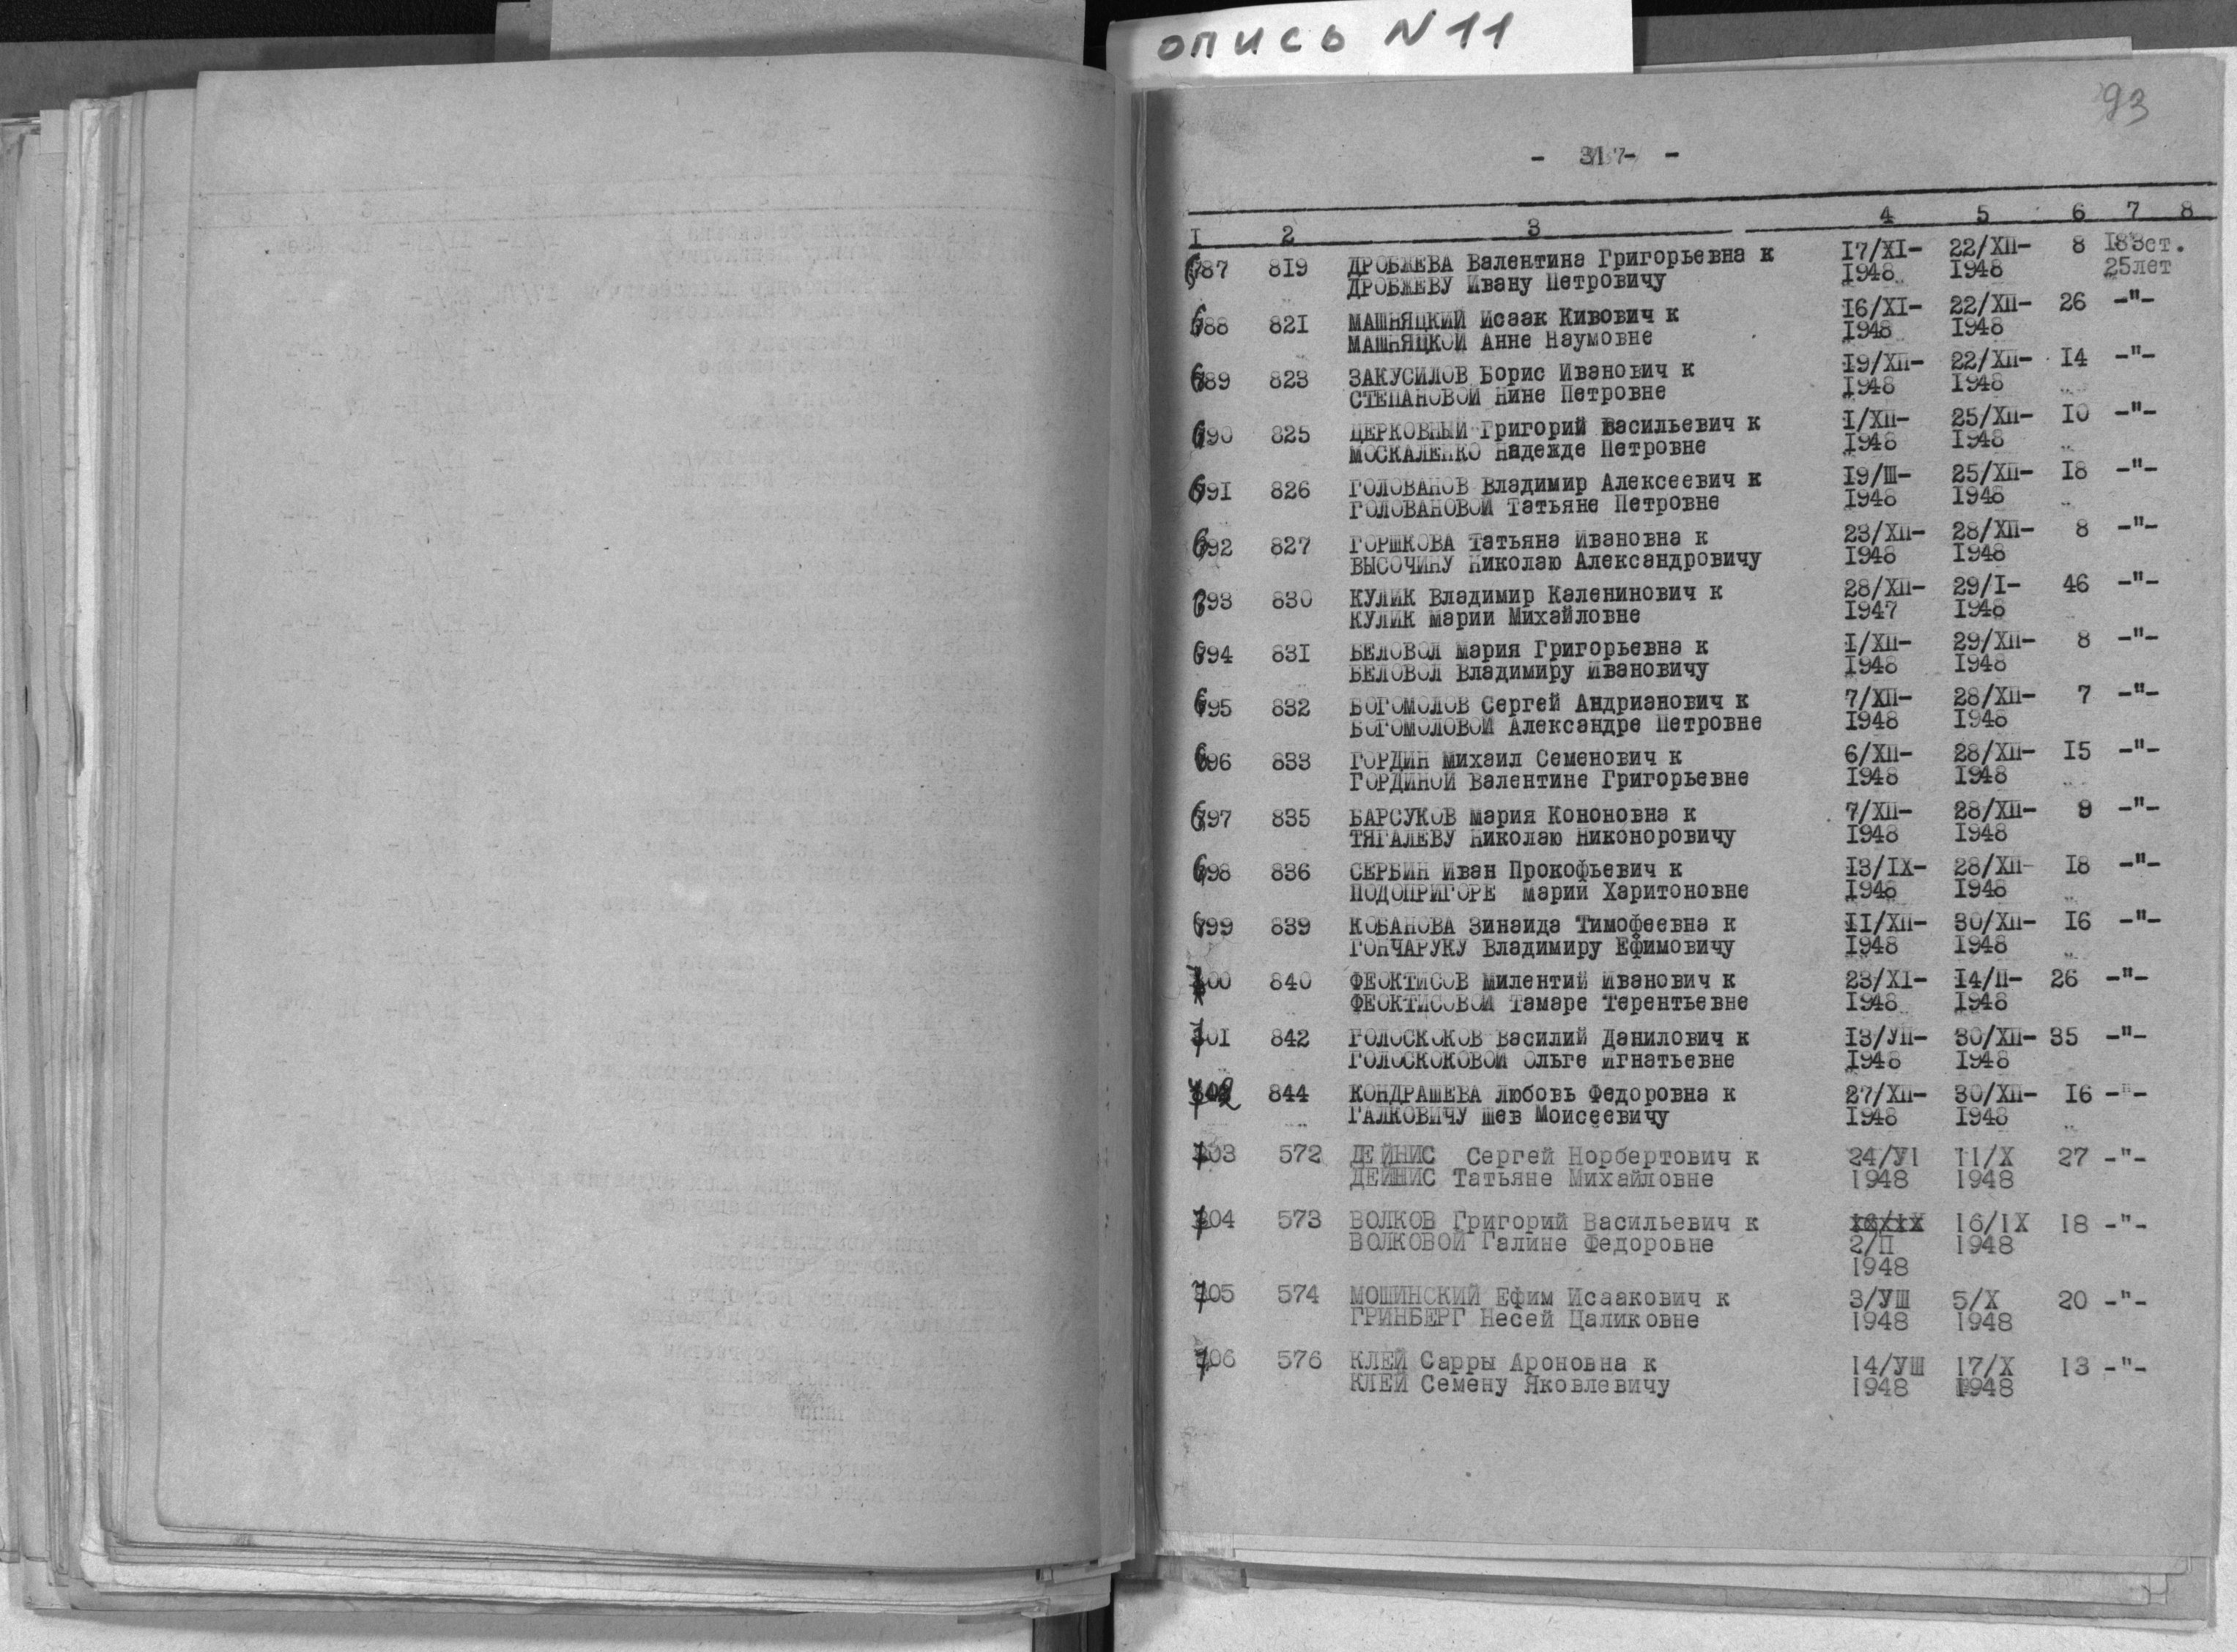 опись N 11
93
- 317- -
1 2 3 4 5 6 7 8
687 819 ДРОБЖЕВА Валентина Григорьевна к 17/XI- 22/XII- 8 183ст.
ДРОБЖЕВУ Ивану Петровичу 1948 1948 25лет
688 821 МАШНЯЦКИЙ Исаак Кивович к 16/XI- 22/XII- 26 -"-
МАШНЯЦКОЙ Анне Наумовне 1948 1948
689 823 ЗАКУСИЛОВ Борис Иванович к 19/XII- 22/XII- 14 -"-
СТЕПАНОВОЙ Нине Петровне 1948 1948
690 825 ЦЕРКОВНЫЙ Григорий Васильевич к 1/XII- 25/XII- 10 -"-
МОСКАЛЕНКО Надежде Петровне 1948 1948
691 826 ГОЛОВАНОВ Владимир Алексеевич к 19/Ш- 25/XII- 18 -"-
ГОЛОВАНОВОЙ Татьяне Петровне 1948 1948
692 827 ГОРШКОВА Татьяна Ивановна к 23/XII- 28/XII- 8 -"-
ВЫСОЧИНУ Николаю Александровичу 1948 1948
693 830 КУЛИК Владимир Каленинович к 28/XII- 29/I- 46 -"-
КУЛИК Марии Михайловне 1947 1948
694 831 БЕЛОВОЛ Мария Григорьевна к 1/XII- 29/XII- 8 -"-
БЕЛОВОЛ Владимиру Ивановичу 1948 1948
695 832 БОГОМОЛОВ Сергей Андрианович к 7/XII- 28/XII- 7 -"-
БОГОМОЛОВОЙ Александре Петровне 1948 1948
696 833 ГОРДИН Михаил Семенович к 6/XII- 28/XII- 15 -"-
ГОРДИНОЙ Валентине Григорьевне 1948 1948
697 835 БАРСУКОВ Мария Кононовна к 7/XII- 28/XII- 9 -"-
ТЯГАЛЕВУ Николаю Никоноровичу 1948 1948
698 836 СЕРБИН Иван Прокофьевич к 13/IX- 28/XII- 18 -"-
ПОДОПРИГОРЕ Марии Харитоновне 1948 1948
699 839 КОБАНОВА Зинаида Тимофеевна к 11/XII- 30/XII- 16 -"-
ГОНЧАРУКУ Владимиру Ефимовичу 1948 1948
700 840 ФЕОКТИСОВ Милентий Иванович к 23/XI- 14/П- 26 -"-
ФЕОКТИСОВОЙ Тамаре Терентьевне 1948 1948
701 842 ГОЛОСКОКОВ Василий Данилович к 13/УП- 30/XII- 35 -"-
ГОЛОСКОКОВОЙ Ольге Игнатьевне 1948 1948
702 844 КОНДРАШЕВА Любовь Федоровна к 27/XII- 30/XII- 16 -"-
ГАЛКОВИЧУ Шев Моисеевичу 1948 1948
703 572 ДЕЙНИС Сергей Норбертович к 24/У1 11/X 27 -"-
ДЕЙНИС Татьяне Михайловне 1948 1948
704 573 ВОЛКОВ Григорий Васильевич к 16/1X 16/1X 18 -"-
ВОЛКОВОЙ Галине Федоровне 2/П 1948
1948
705 574 МОШИНСКИЙ Ефим Исаакович к 3/УШ 5/X 20 -"-
ГРИНБЕРГ Несей Цаликовне 1948 1948
706 576 КЛЕЙ Сарры Ароновна к 14/УШ 17/X 13 -"-
КЛЕЙ Семену Яковлевичу 1948 1948